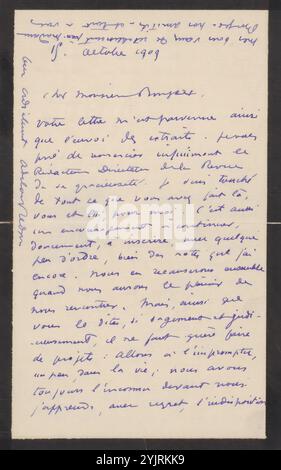 15. Octobre 1909
Cher Monsieur
votre lettre m'est parvenue ainsi
que l'envoi des extraits. Je vous
prie de remercier infiniment le
Rédacteur Directeur de la Revue
de sa gracieuseté. Je suis touché
de tout ce que vous avez fait là,
vous et lui pour moi. C'est aussi
un encouragement à continuer,
à mettre avec quelque
peu d'ordre, bien des notes que j'ai
encore. Nous en recauserons ensemble
quand nous aurons le plaisir de
nous rencontrer. Mais, ainsi que
vous le dites, si sagement et judi-
cieusement, il ne faut guère faire
de projets : allons à l'impromptu,
un peu, dans la vie ; nous avons
toujours l'inconnu devant nous
j'apprends, avec regret l'indisposition
alamy
Image ID: 2YJRKK9
www.alamy.com